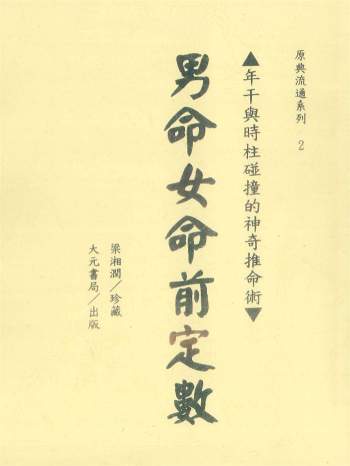 原典流通系列 2
▲年干與時柱碰撞的神奇推命術▼
男命女命前定數
梁湘潤／珍藏
大元書局／出版